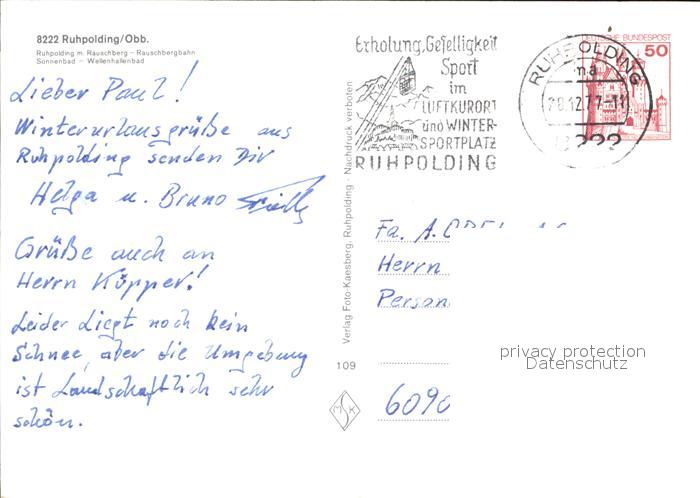 8222 Ruhpolding/Obb.
Ruhpolding m. Rauschberg – Rauschbergbahn
Sonnenbad – Wellenhallenbad
Lieber Paul!
Winterurlausgrüße aus
Ruhpolding senden Dir
Helga u. Bruno
Grüße auch an
Herrn Küpper!
Leider liegt noch kein
Schnee, aber die Umgebung
ist Landschaftlich sehr
schön.
Verlag Foto-Kaesberg, Ruhpolding · Nachdruck verboten
109
MSK
Erholung, Geselligkeit
Sport
im
LUFTKURORT
und WINTER-
SPORTPLATZ
RUHPOLDING
RUHPOLDING
ma
28.12.77-11
8222
DEUTSCHE BUNDESPOST
50
Fa. A.
Herrn
Person
6090
privacy protection
Datenschutz